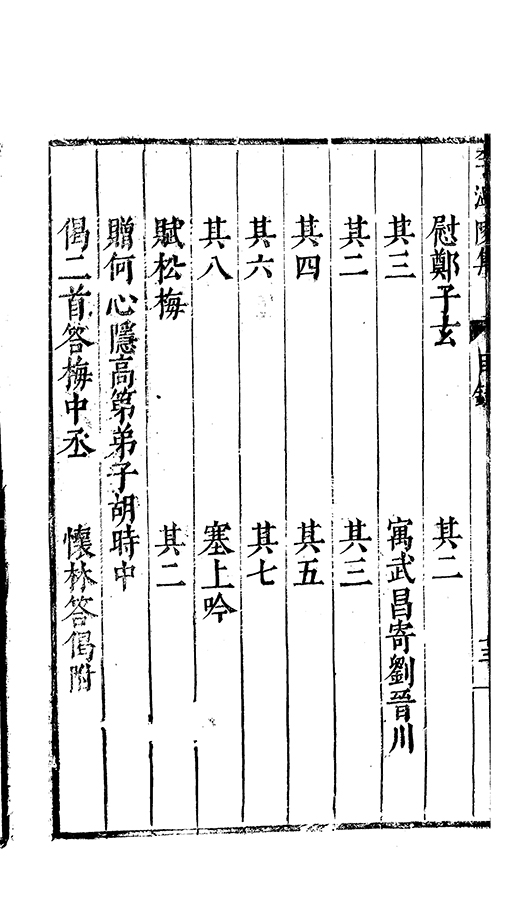 李溫陵集 目錄
慰鄭子玄 其二
其三 寓武昌寄劉晉川
其二 其三
其四 其五
其六 其七
其八 塞上吟
賦松梅 其二
贈何心隱高第弟子胡時中
偈二首答梅中丞 懷林答偈附